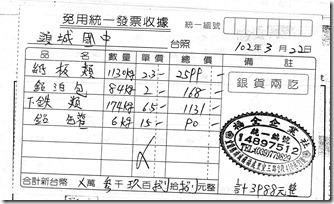 免用統一發票收據
統一編號
頭城國中 台照
102年3月22日
品名 數量 單價 總價 備註
紙板類 1130kg 2.3- 2599
鋁泊包 84kg 2- 168
下鉄類 174kg 6.5- 1131
鋁 6kg 15- 90
銀貨兩訖
企業社
統一編號
14897512
合計新台幣 X萬 參千 玖百 捌拾 捌元整
計3988元整